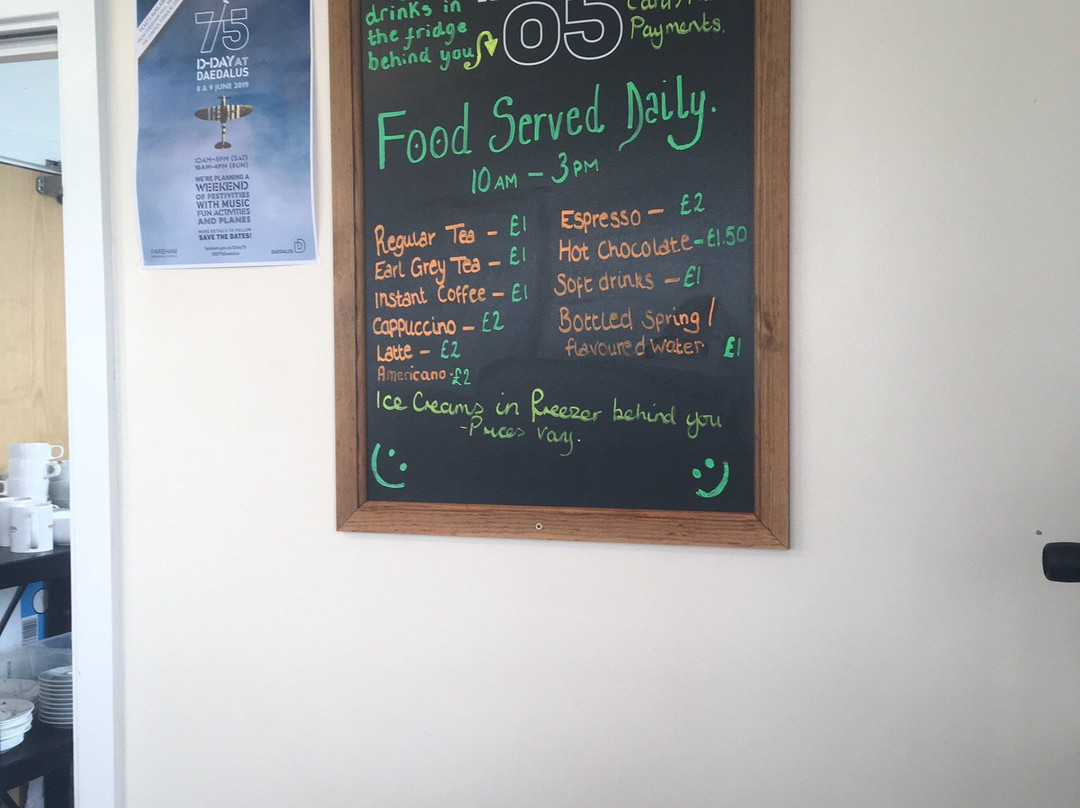 75
D-DAY AT
DAEDALUS
8 & 9 JUNE 2019
10AM-5PM (SAT)
10AM-4PM (SUN)
WE'RE PLANNING A
WEEKEND
OF FESTIVITIES
WITH MUSIC
FUN ACTIVITIES
AND PLANES
MORE DETAILS TO FOLLOW
SAVE THE DATES!
FAREHAM
DAEDALUS
drinks in
the fridge
behind you
05
Payments.
Food Served Daily.
10AM - 3PM
Regular Tea - £1
Earl Grey Tea - £1
Instant Coffee - £1
Cappuccino - £2
Latte - £2
Americano - £2
Espresso - £2
Hot Chocolate - £1.50
Soft drinks - £1
Bottled Spring /
flavoured Water £1
Ice Creams in Freezer behind you
- Prices vary.